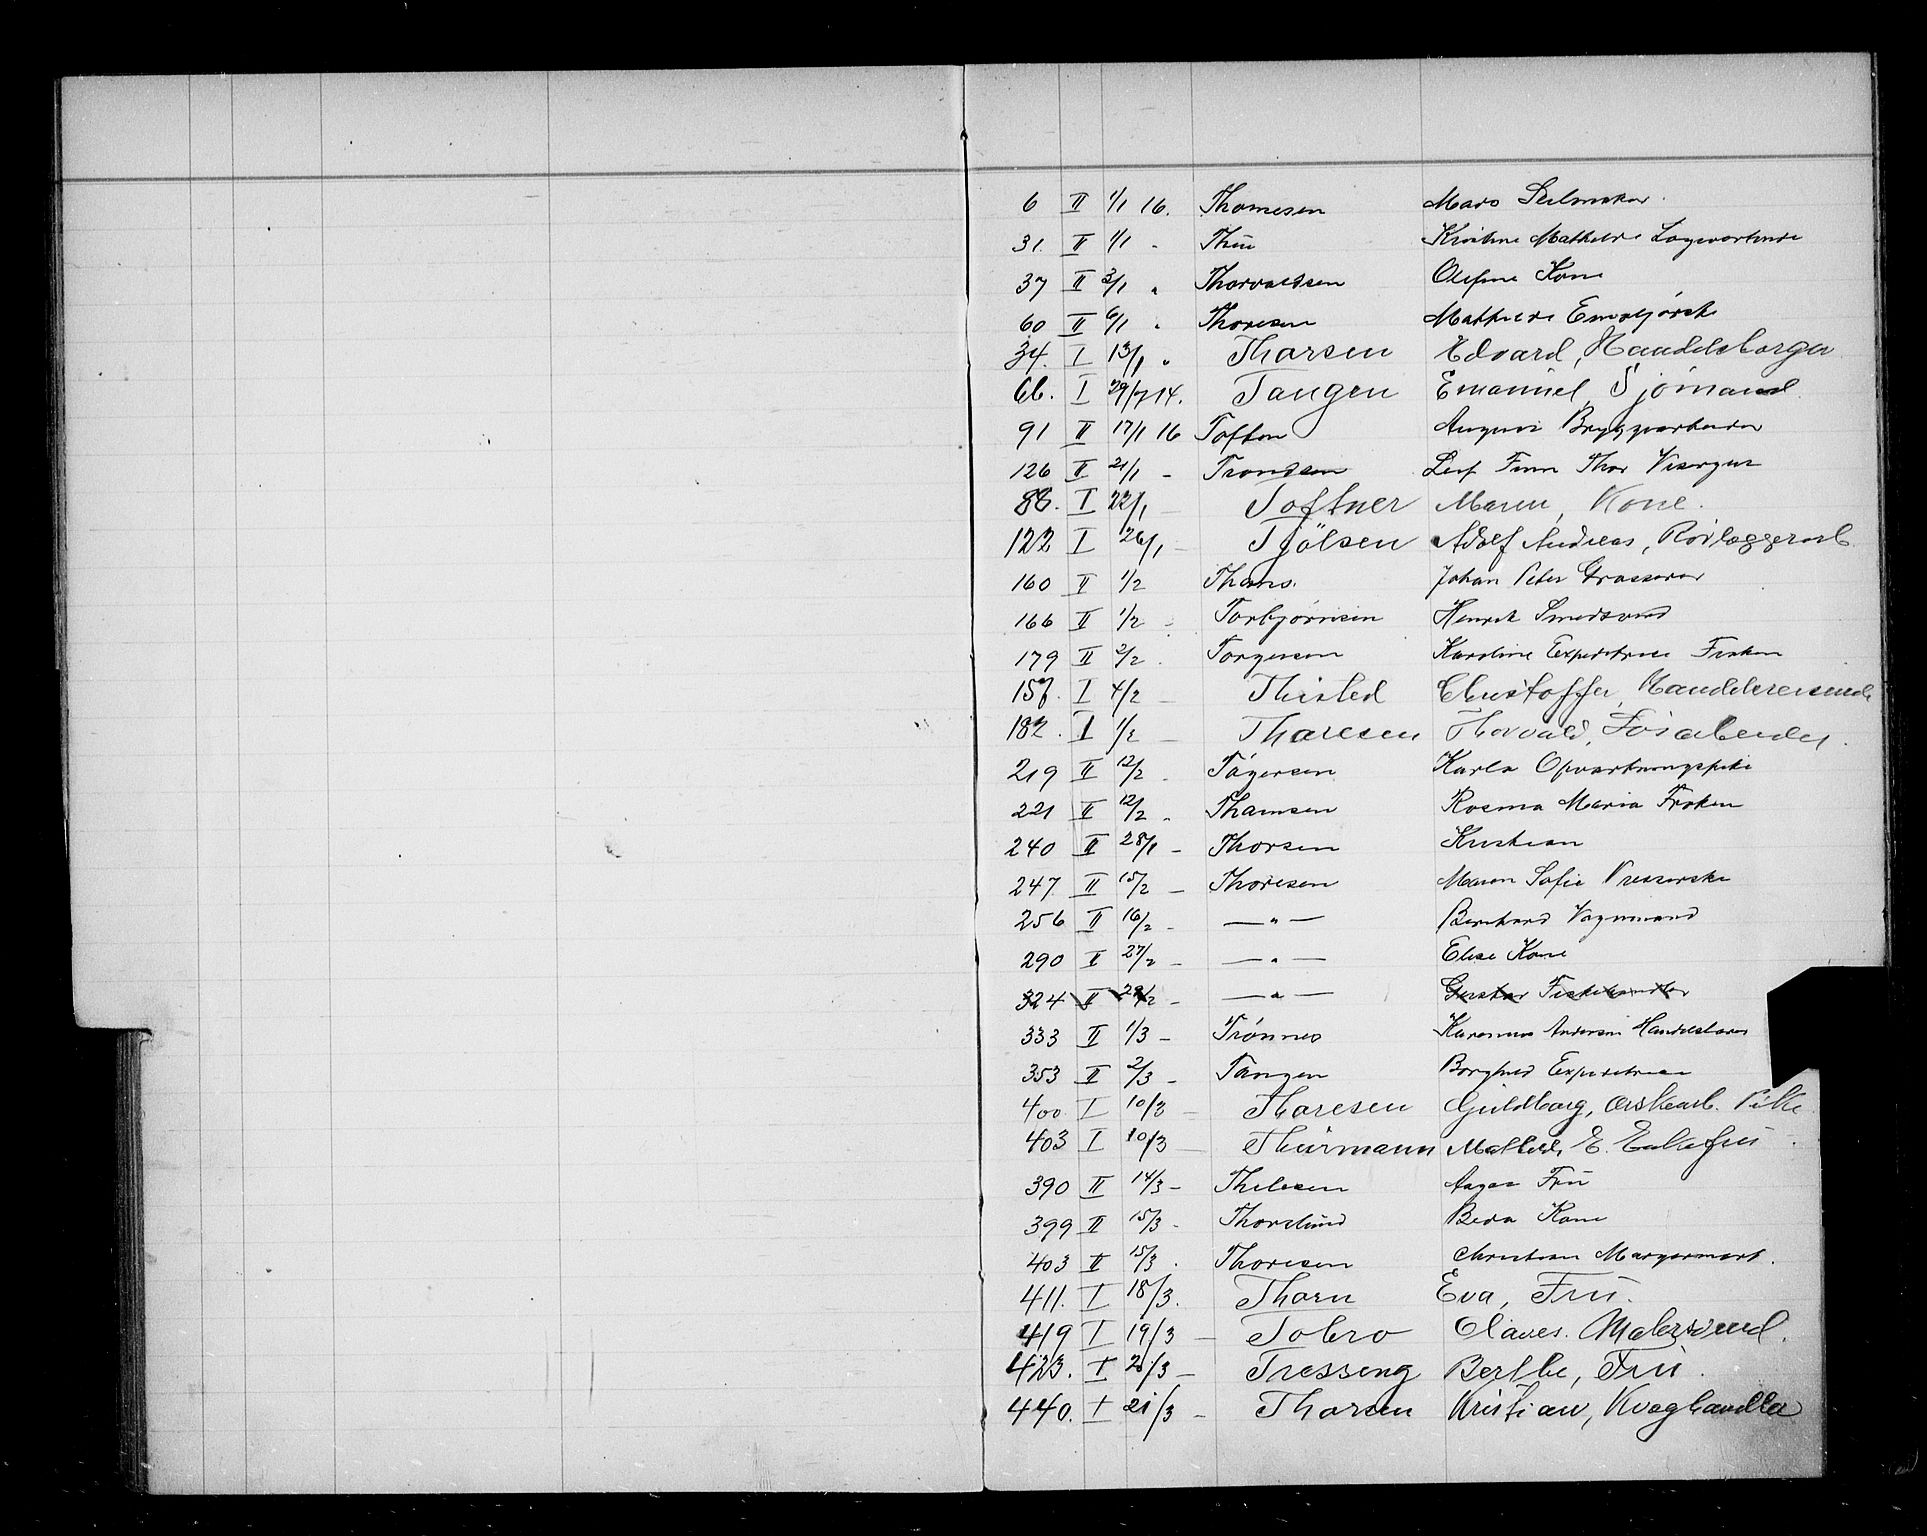 6 II 1/1 16. Thomesen Mads Seilmaker
31. II 1/1 " Thiis Kristine Mathilde Logevartinde
37 II 3/1 " Thorvaldsen Olefine Kone
60 II 6/1 " Thoresen Mathilde
34. I 13/1 " Thorsen Edvard, Handelsborger
66. I 29/7 14. Tangen Emanuel, Sjömand
91 II 17/1 16 Toften August Bryggearbeider
126 II 21/1 - Trondsen Leif Finn Thor Visergut
88. I 22/1 - Toftner Maren, Kone.
122 I 26/1 - Tjölsen Adolf Andreas, Rörlæggerarb.
160 II 1/2 Thams. Johan Peter Grosserer
166 II 1/2 - Torbjörnsen Henrik Smedsvend
179 II 2/2 . Torgersen Karoline Expeditrice Frøken
157. I 4/2 - Thisted Christoffer, Handelsreisende
182. I 1/2 - Thoresen Thorvald, Løsarbeider.
219 II 12/2 . Tögersen Karla Opvartningspike
221 II 12/2 . Thamsen Rosina Maria Frøken
240 II 28/1 - Thorsen Kristian
247 II 15/2 - Thoresen Maren Sofie Presserske
256 II 16/2 - — " — Bernhard Vognmand
290 II 27/2 - — " — Elise Kone
324 II 29/2 - — " — Gustav Fiskehandler
333 II 1/3 - Trönnes Andersen Handelsborger
353 II 2/3 - Tangen Borghild Expeditrice
400 I 10/3 - Thoresen Guldborg, Æskearb. Pike
403 I 10/3 - Thurmann Mathilde E. Enkefru.
390 II 14/3 - Thelesen Aagot Fru
399 II 15/3 - Thorslund Beda Kone
403 II 15/3 . Thoresen Christian
411. I 18/3. Thorn Eva, Fru.
419 I 19/3 - Tobro Olaves. Malersvend.
423. I 21/3 - Tresseng Berthe, Fru.
440. I 21/3 - Thoresen Kristian, Kvæghandler